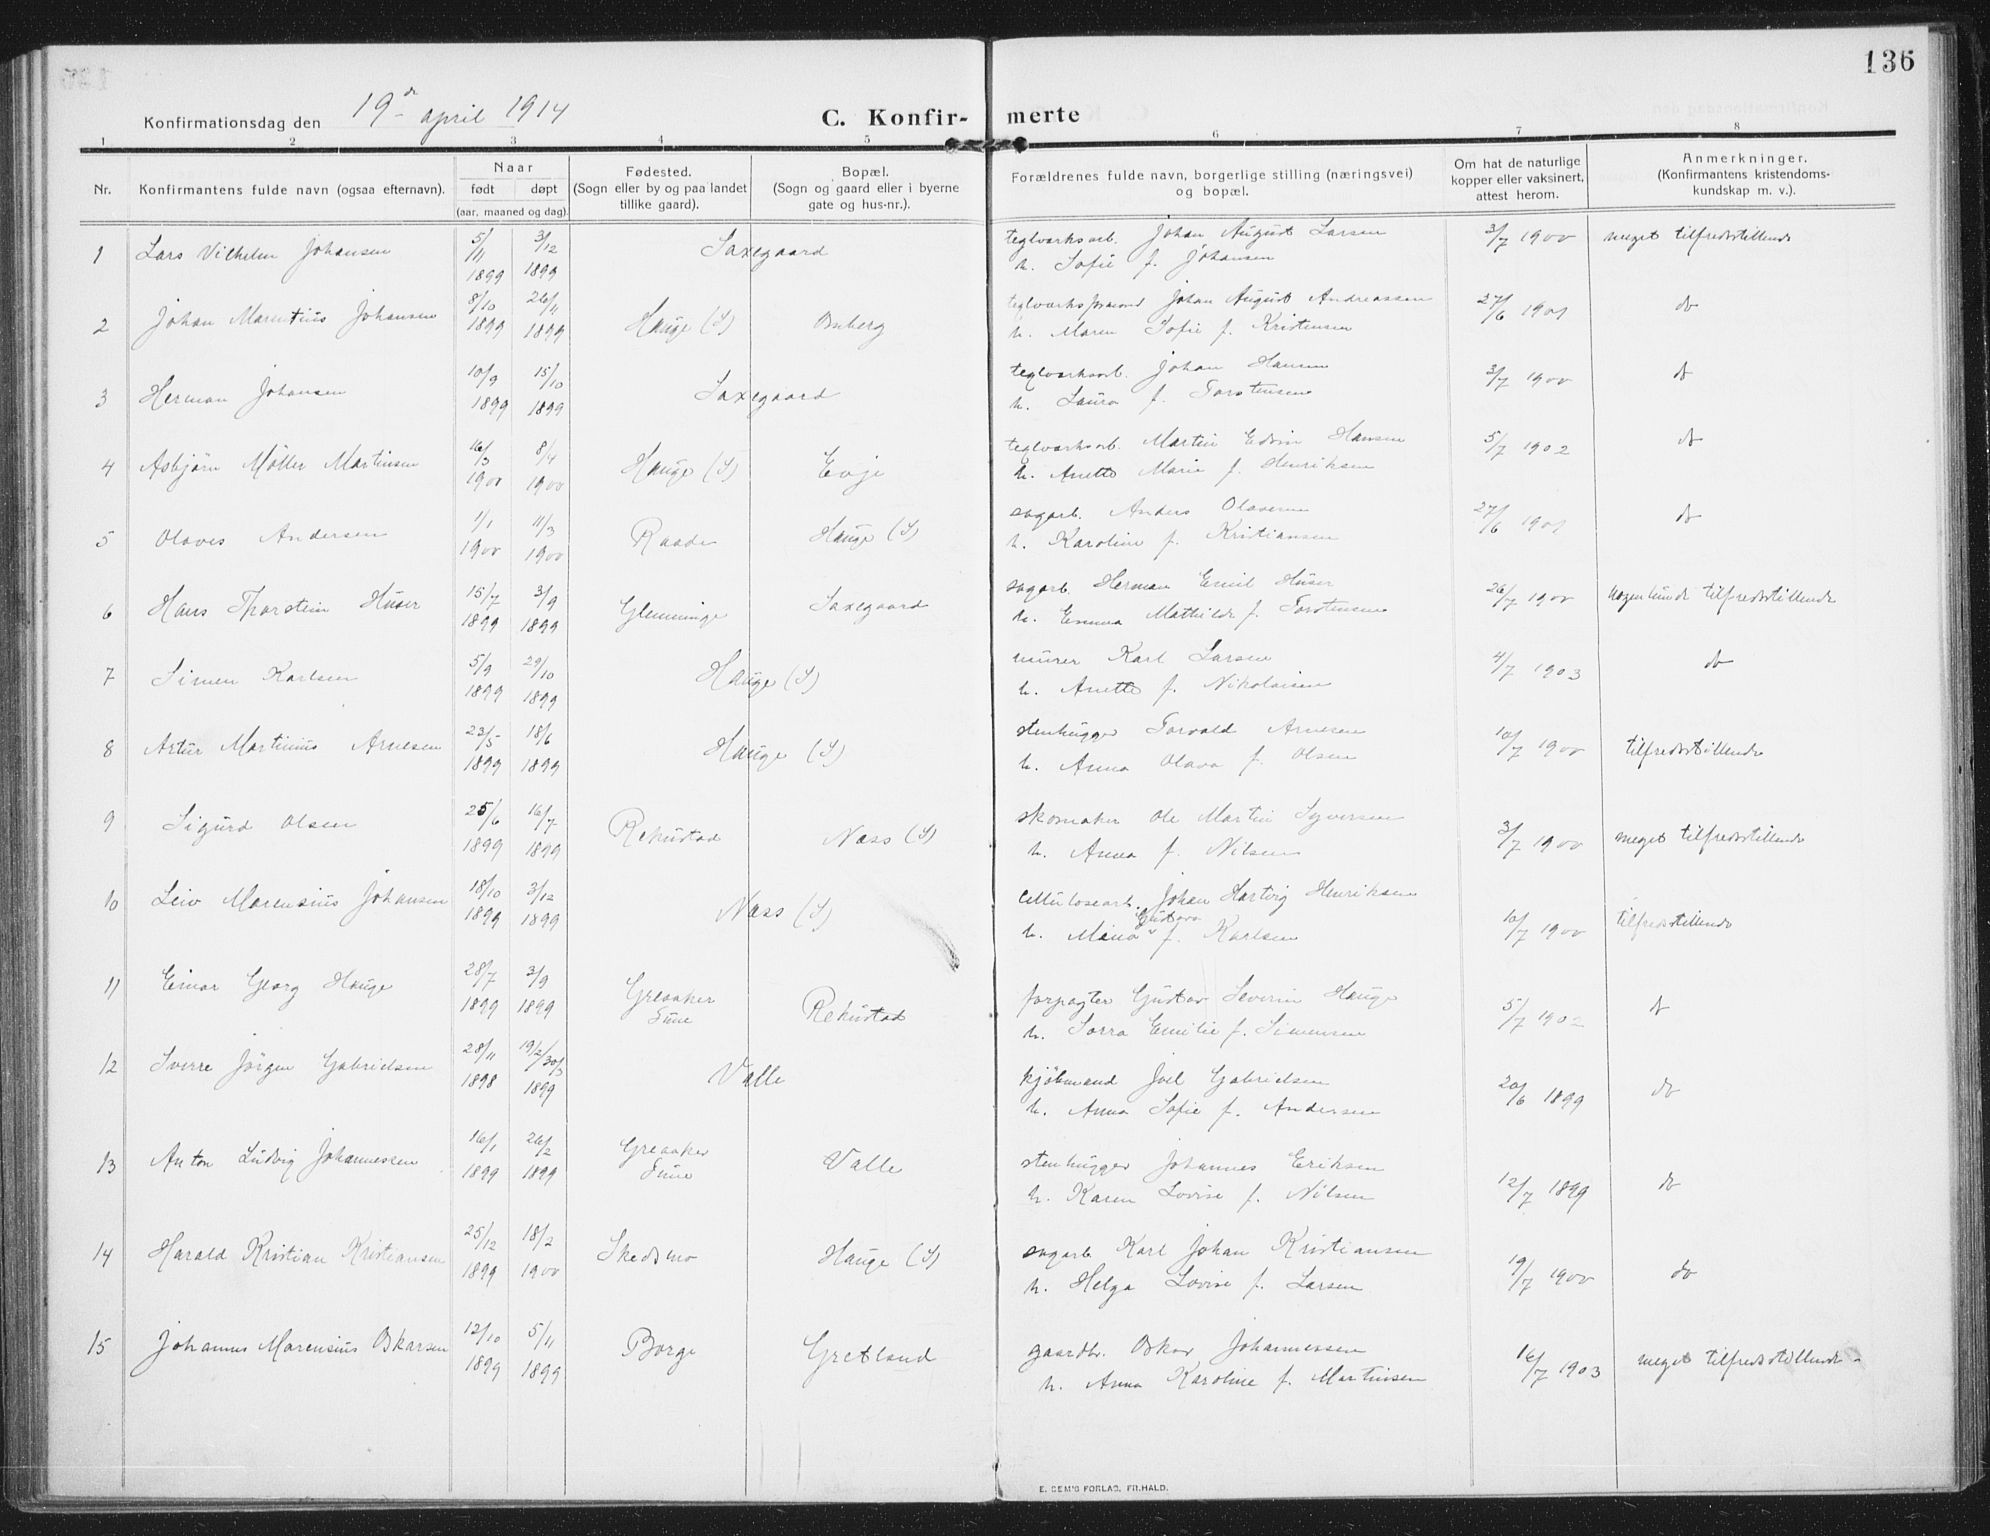 136
Konfirmationsdag den 19de april 1914
C. Konfir- merte
1 2 3 4 5 6 7 8
Nr. Konfirmantens fulde navn (ogsaa efternavn). Naar født døpt (aar, maaned og dag). Fødested. (Sogn eller by og paa landet tillike gaard). Bopæl. (Sogn og gaard eller i byerne gate og hus-nr.). Forældrenes fulde navn, borgerlige stilling (næringsvei) og bopæl. Om hat de naturlige kopper eller vaksinert, attest herom. Anmerkninger. (Konfirmantens kristendoms-kundskap m. v.).
1 Lars Vilhelm Johansen 5/11 1899 3/12 1899 Saxegaard teglværksarb. Johan August Larsen 3/7 1900 meget tilfredsstillende
h. Sofie f. Johansen
2 Johan Marentius Johansen 8/10 1899 26/11 1899 Hauge (S) teglværksformand Johan August Andreassen 27/6 1901 do
h. Maren Sofie f. Kristensen
3 Herman Johansen 10/9 1899 15/10 1899 Saxegaard teglværksarb. Johan Hansen 3/7 1900 do
h. Laura f. Torstensen
4 Asbjørn Møller Martinsen 16/3 1900 8/4 1900 Hauge (S) Evje teglværksarb. Martin Edvin Hansen 5/7 1902 do
h. Anette Marie f. Henriksen
5 Olaves Andersen 1/1 1900 11/3 1900 Raade Hauge (S) sagarb. Anders Olavesen 27/6 1901 do
h. Karoline f. Kristiansen
6 Hans Thorstein Huser 15/7 1899 3/9 1899 Glemminge Saxegaard sagarb. Herman Emil Huser 26/7 1900 nogenlunde tilfredsstillende
h. Emma Mathilde f. Torstensen
7 Simen Karlsen 5/9 1899 29/10 1899 Hauge (S) murer Karl Larsen 4/7 1903 do
h. Anette f. Nikolaisen
8 Artur Martinius Arnesen 23/5 1899 18/6 1899 Hauge (S) stenhugger Torvald Arnesen 10/7 1900 tilfredsstillende
h. Anna Olava f. Olsen
9 Sigurd Olsen 25/6 1899 16/7 1899 Rekustad Næss (S) skomaker Ole Martin Syversen 3/7 1900 meget tilfredsstillende
h. Anna f. Nilsen
10 Leiv Marensius Johansen 18/10 1899 3/12 1899 Næss (S) cellulosearb. Johan Hartvig Henriksen 10/7 1900 tilfredsstillende
h. Mina Gustava f. Karlsen
11 Einar Georg Hauge 28/7 1899 3/9 1899 Greaaker Tune Rekustad forpagter Gustav Severin Hauge 5/7 1902 do
h. Emilie f. Simensen
12 Sverre Jörgen Gabrielsen 28/11 1898 19/2/30/3 1899 Valle kjöbmand Joel Gabrielsen 20/6 1899 do
h. Anna Sofie f. Andersen
13 Anton Ludvig Johannessen 16/1 1899 26/2 1899 Greaaker Tune Valle stenhugger Johannes Eriksen 12/7 1899 do
h. Karen Lovise f. Nilsen
14 Harald Kristian Kristiansen 25/12 1899 18/2 1900 Skedsmo Hauge (S) sagarb Karl Johan Kristiansen 19/7 1900 do
h. Helga Lovise f. Larsen
15 Johannes Marensius Oskarsen 12/10 1899 5/11 1899 Borge Gretland gaardbr. Oskar Johannessen 16/7 1903 meget tilfredsstillende
h. Anna Karoline f. Martinsen
E. SEM'S FORLAG, FR.HALD.